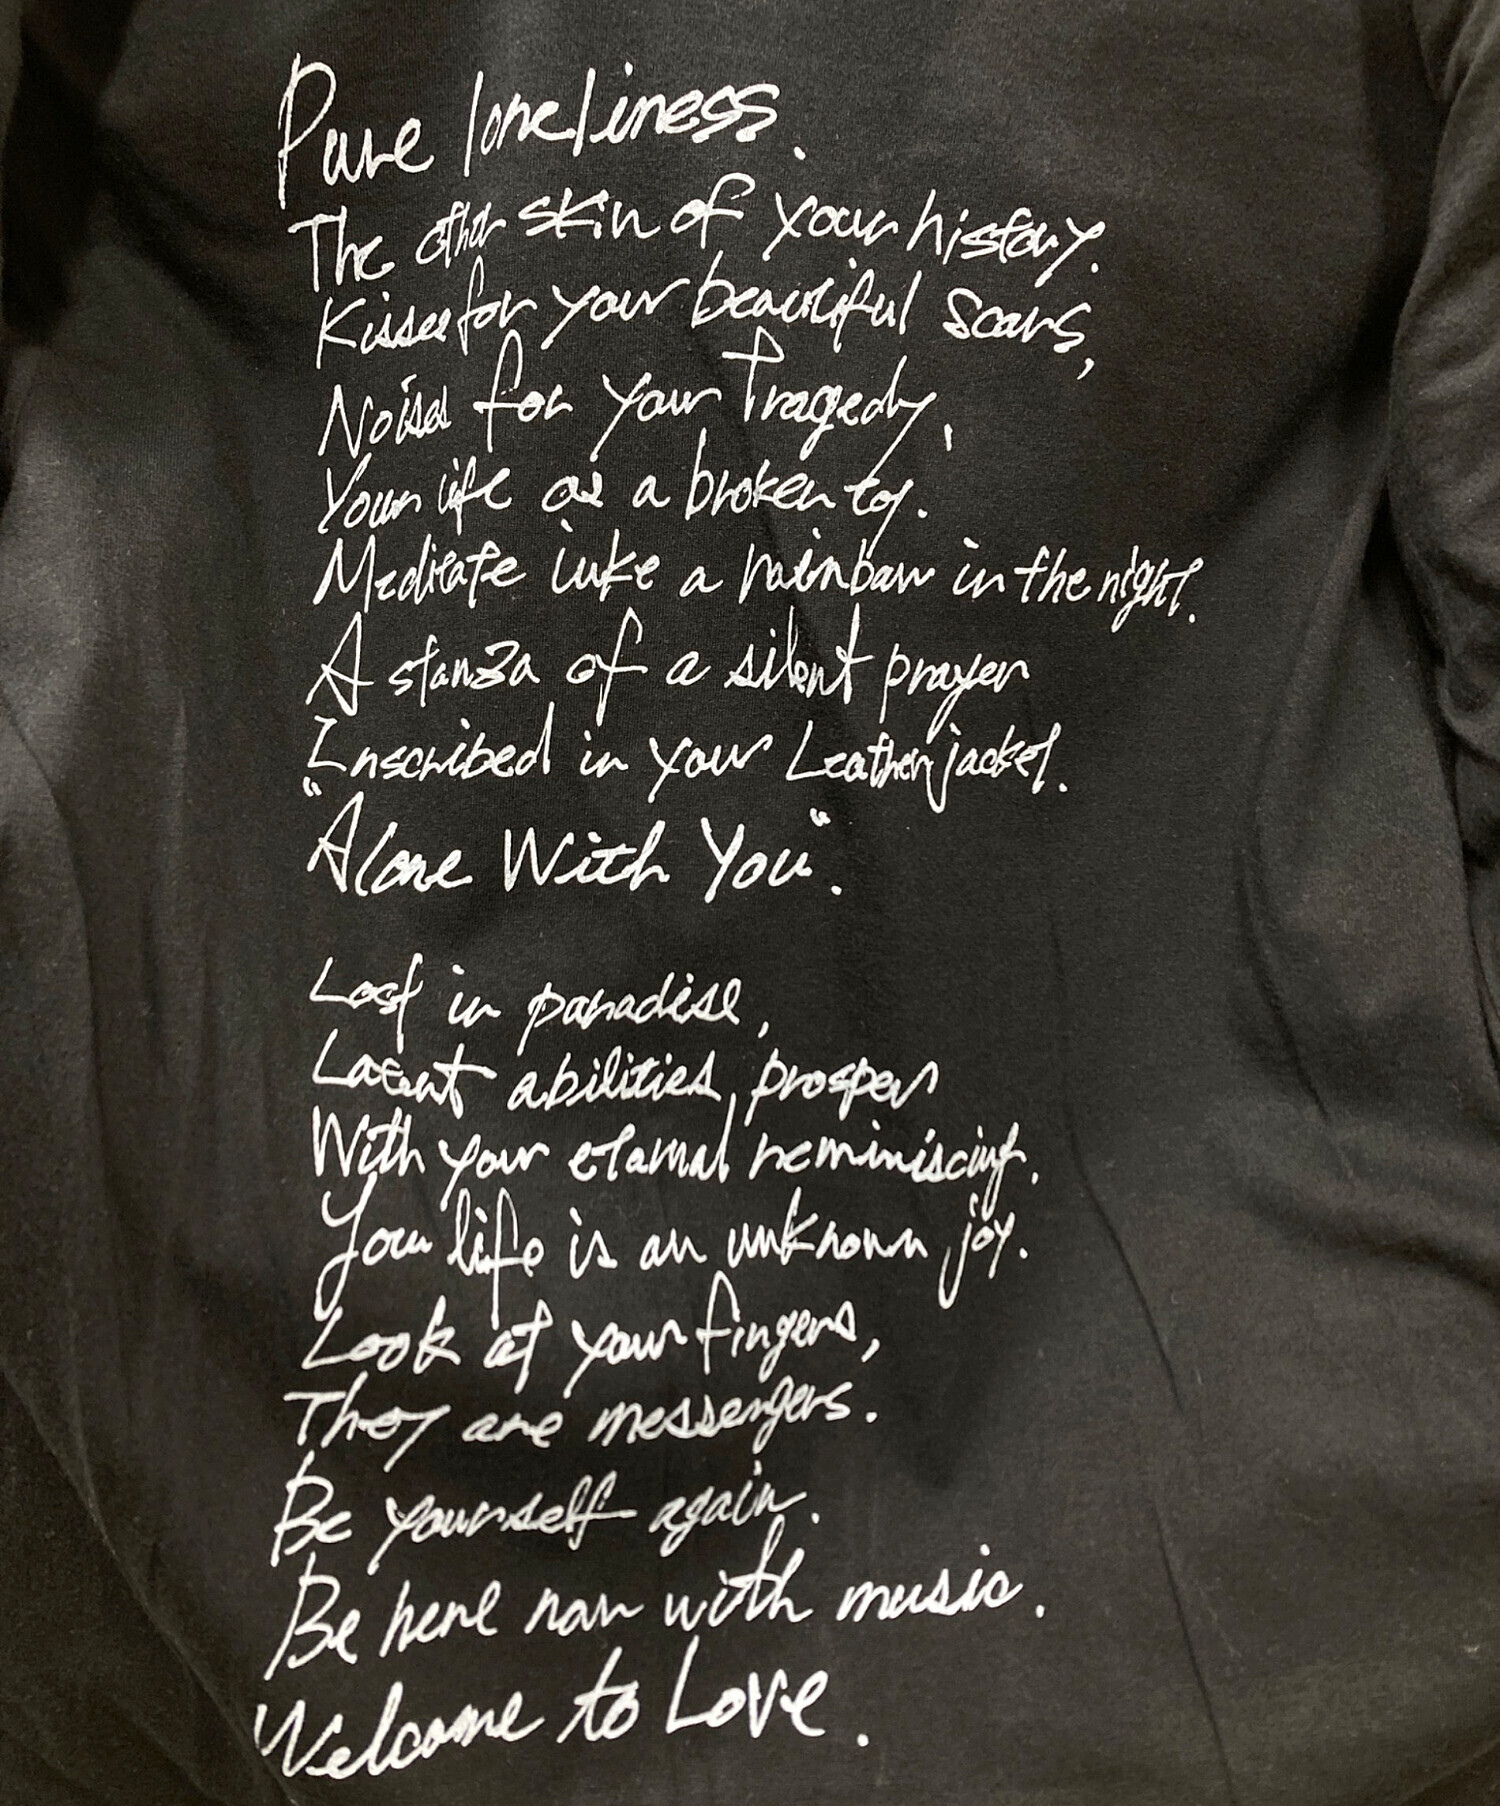 Pure loneliness.
The other skin of your history.
Kisses for your beautiful scars,
Noises for your Tragedy,
Your life as a broken toy.
Meditate like a rainbow in the night.
A stanza of a silent prayer
Inscribed in your Leather jacket.
"Alone With You".
Lost in paradise,
Latent abilities, prosper
With your eternal reminiscing.
Your life is an unknown joy.
Look at your fingers,
They are messengers.
Be yourself again.
Be here now with music.
Welcome to Love.